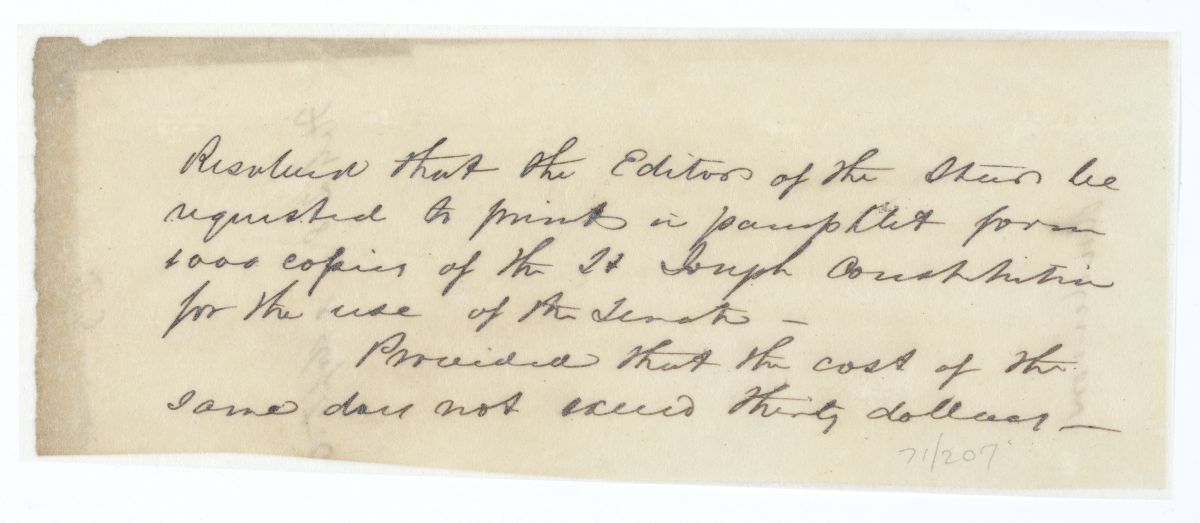 Resolved that the Editor of the Star be
requested to print in pamphlet form
1000 copies of the St Joseph Constitution
for the use of the Senate –
Provided that the cost of the
same does not exceed thirty dollars –
71/207